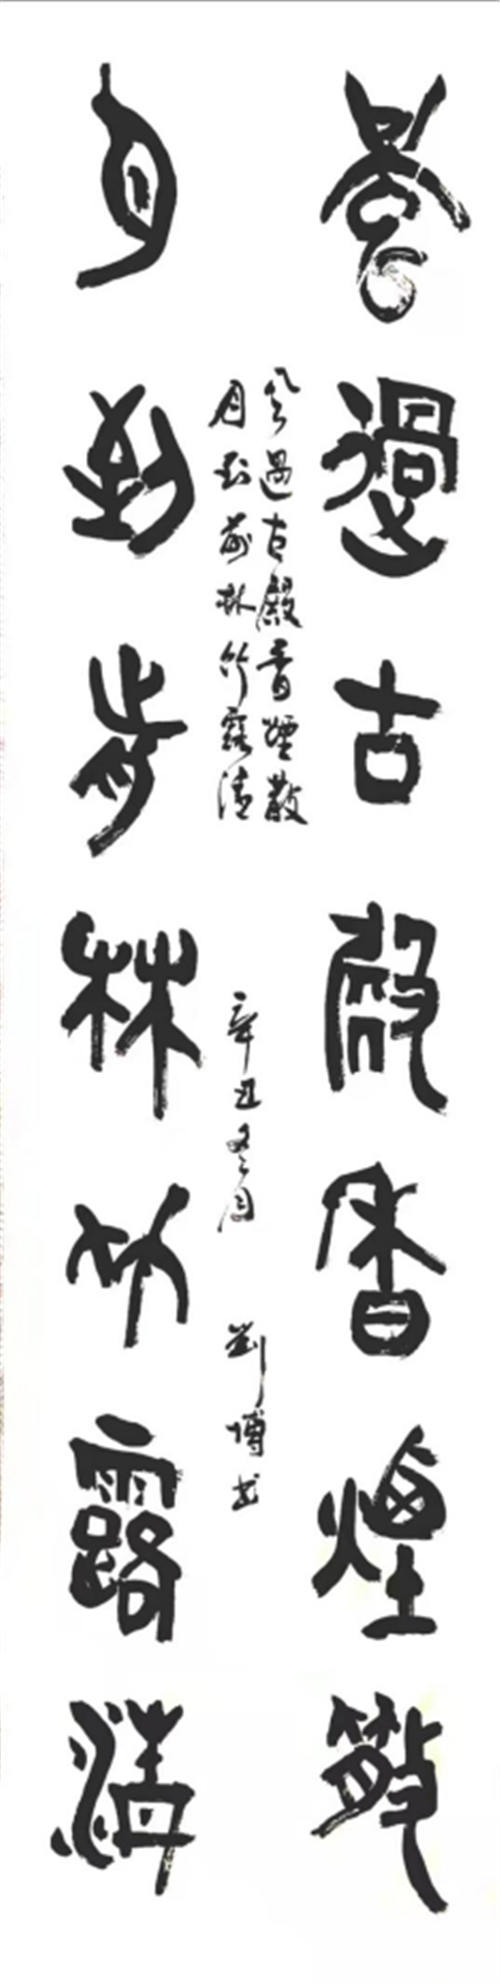 風過古殿香煙散
月到前林竹露清
風過古殿香煙散
月到前林竹露清
辛丑冬月 劉博書